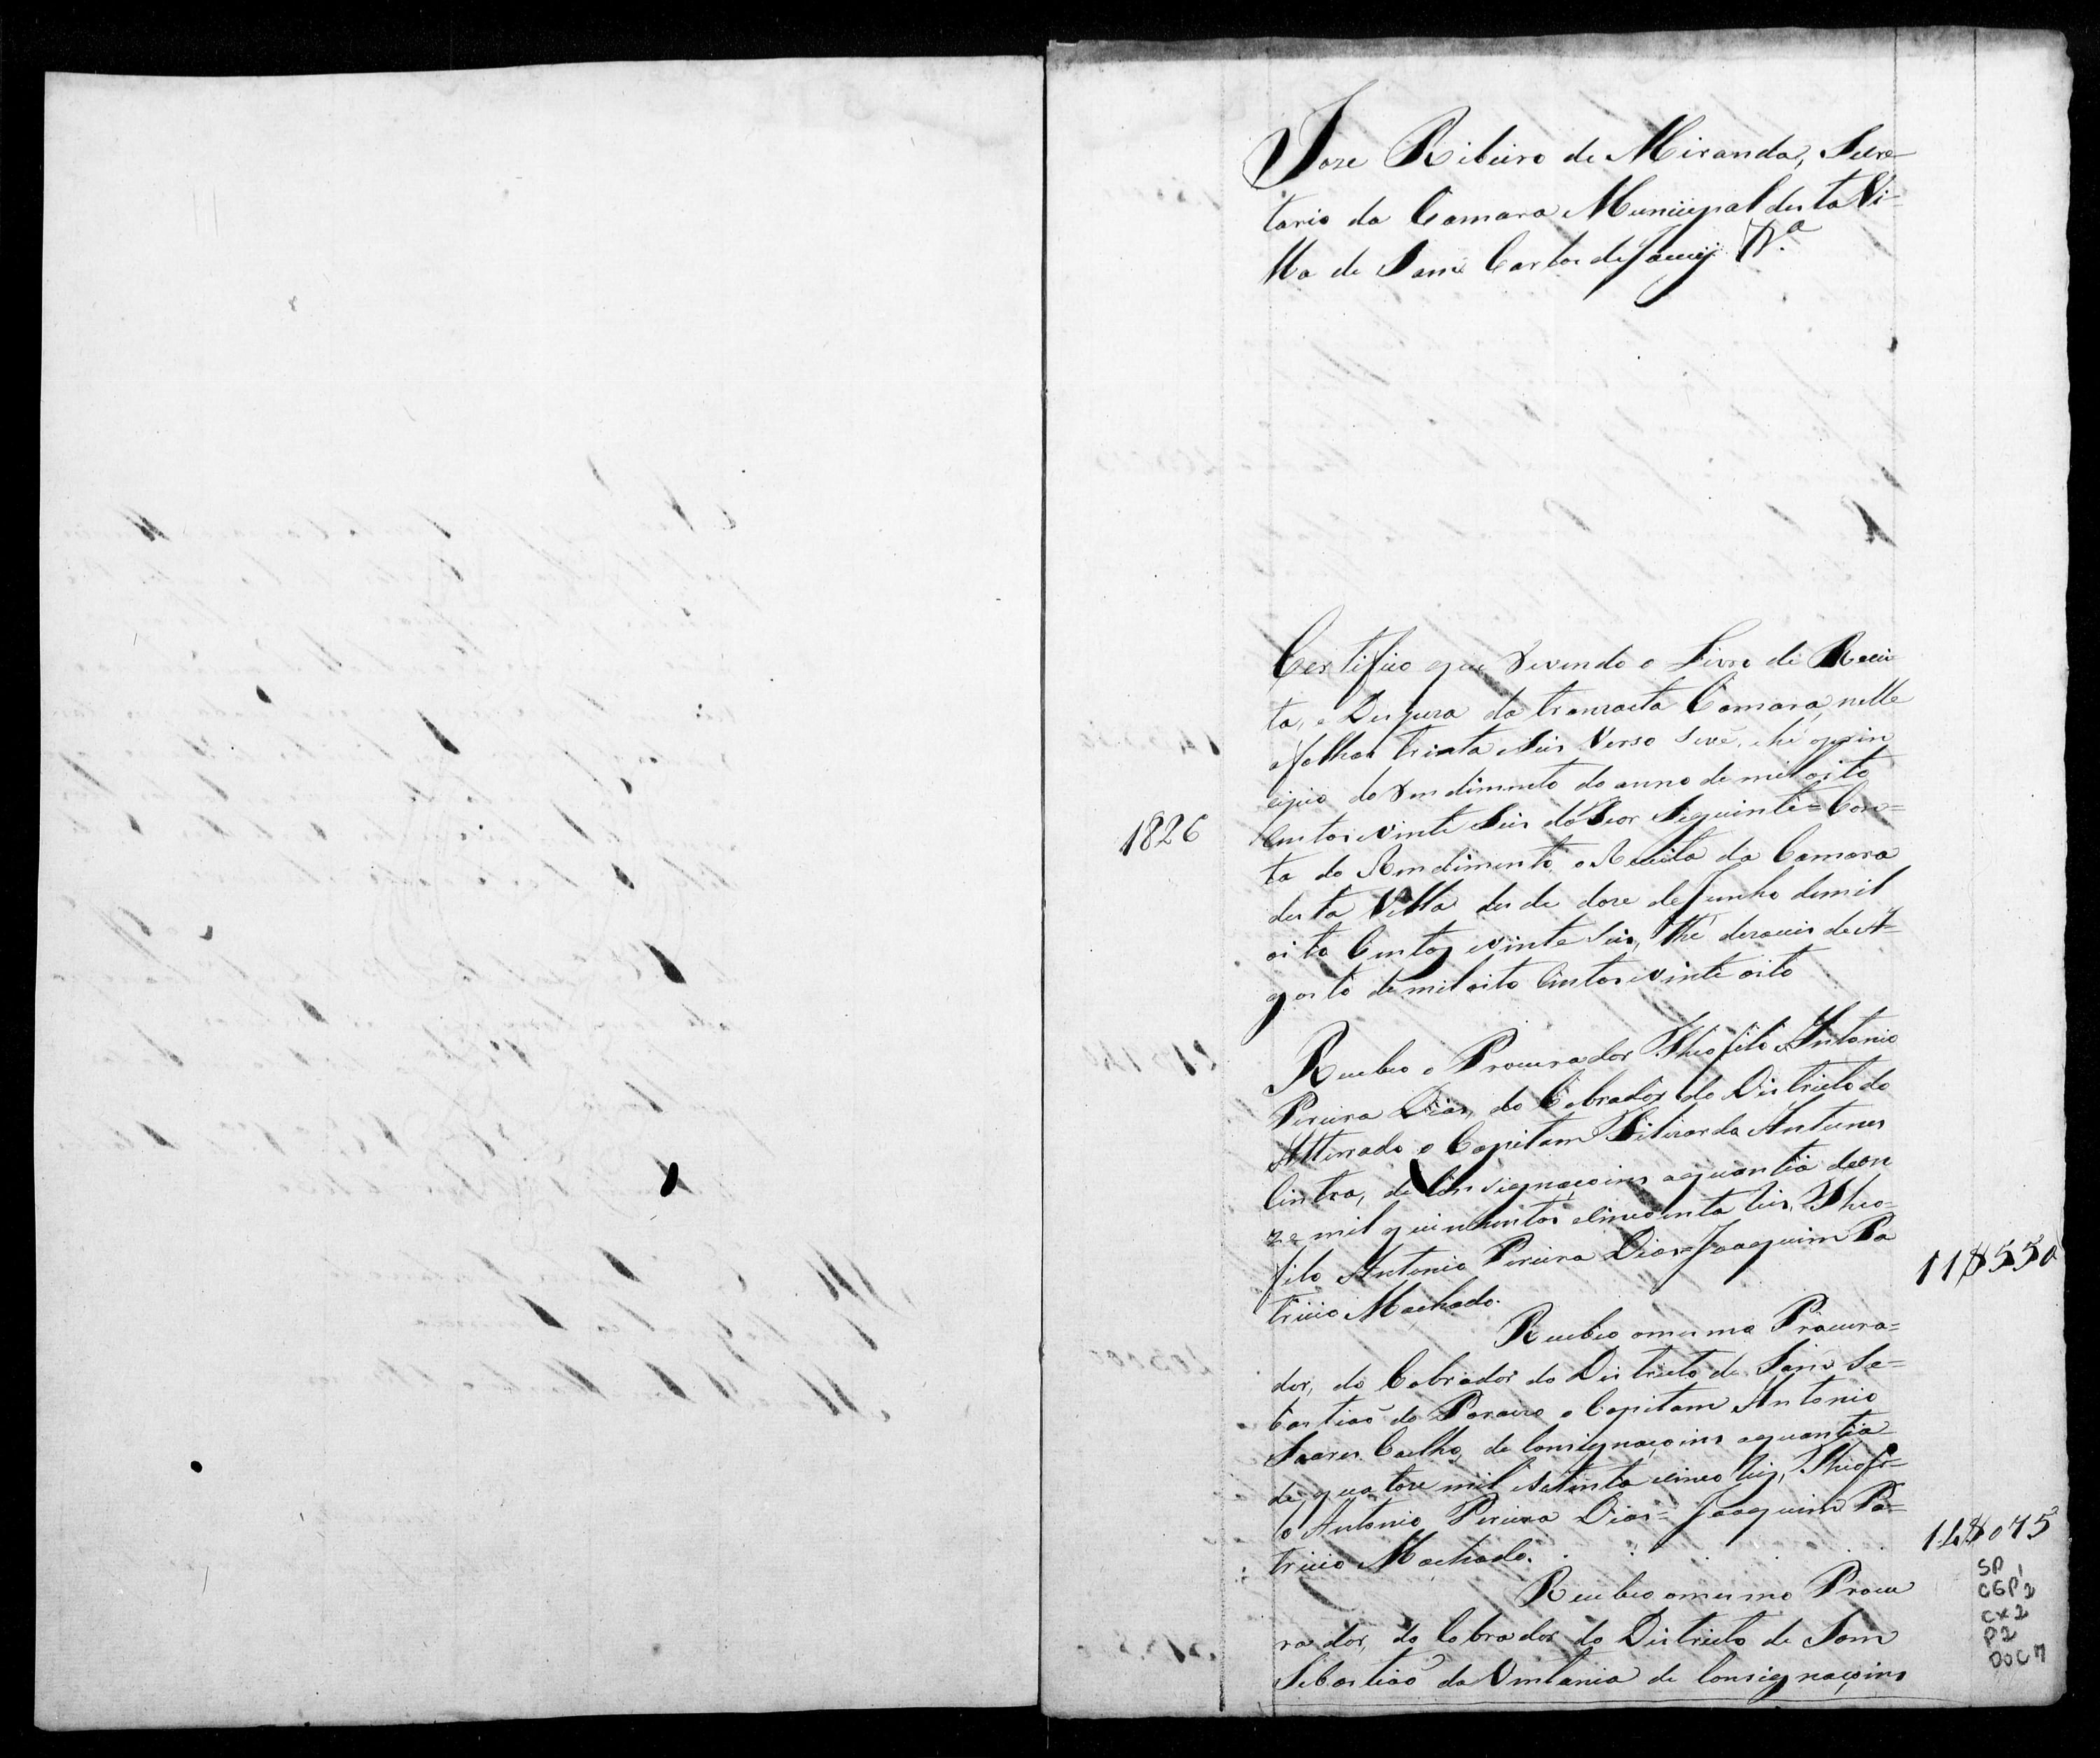 Joze Ribeiro de Miranda, Secre-
tario da Camara Municipal desta Vi-
lla de Sam Carlos de Jacuÿ V.ª
Certifico que revendo o Livro de Recei
ta, e Despeza da transacta Camara, nelle
a folhas trinta e seis verso
cipio do rendimento do anno de mil oito
1826
centos e vinte seis do theor seguinte = Con=
ta do Rendimento, e Receita da Camara
desta Villa desde doze de Junho de mil
oito Centos e vinte seis, thé dezaseis de A=
gosto de mil oito Centos e vinte oito
Recebeo o Procurador Theofilo Antonio
Pereira Dias, do Cobrador do Districto do
Atterrado o Capitam Antunes
Cintra, de Consignaçoins a quantia de on
ze mil quinhentos e sincoenta reis, Theo=
filo Antonio Pereira Dias = Joaquim Pa
tricio Machado.
11$550
Recebeo o mesmo Procura=
dor, do Cobrador do Districto de Sam Se=
bastiaõ do Paraizo o Capitam Antonio
Soares Coelho, de Consignaçoins a quantia
de quatorze mil e setenta e sinco reis, Theofi=
lo Antonio Pereira Dias = Joaquim Pa=
tricio Machado. . . . .
14$075
Recebeo o mesmo Procu
rador, do Cobrador do Districto de Sam
Sebastiaõ da Ventania de Consignaçoins
SP
CGP2
CX2
P2
DOC7